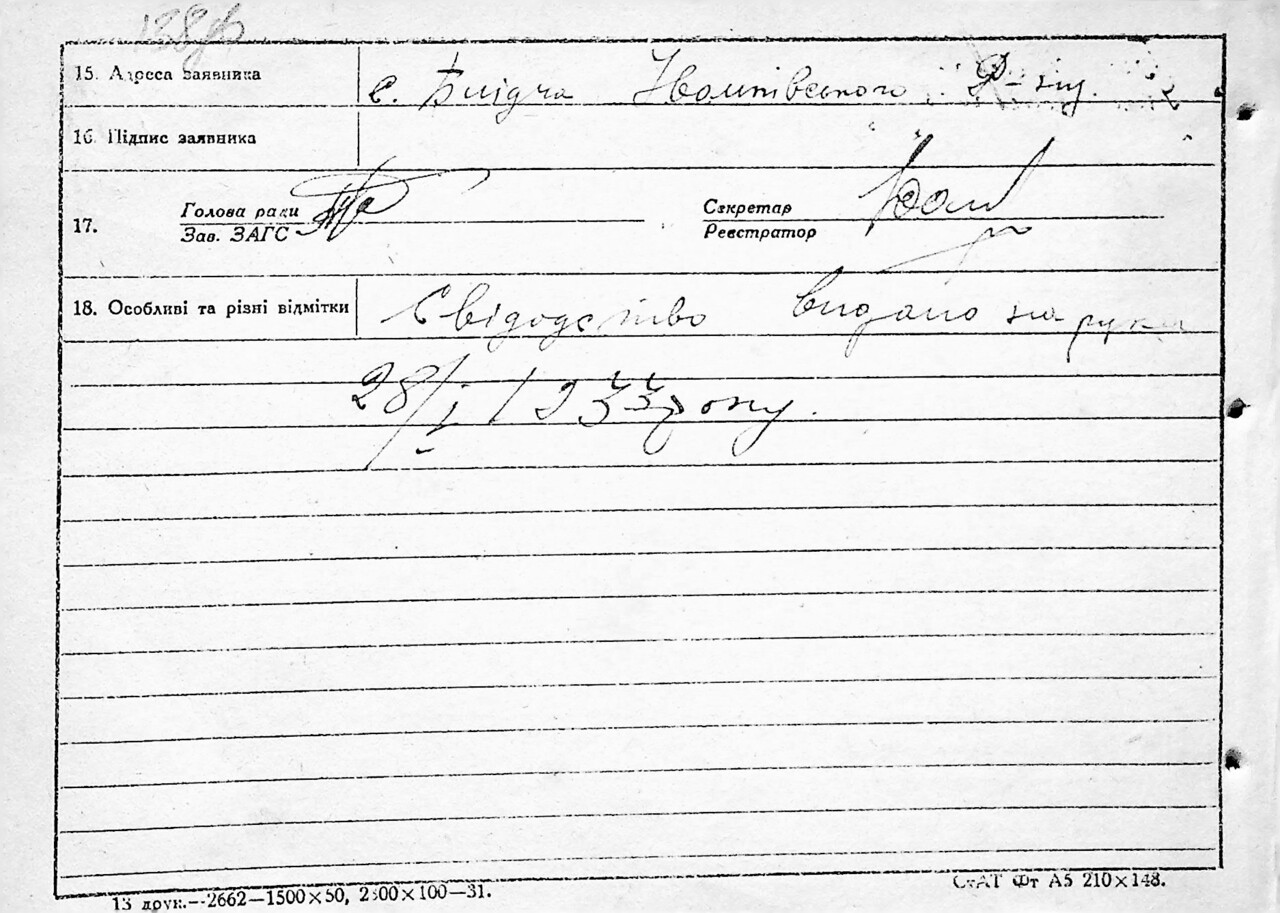 138ф
15. Адреса заявника с. Блідча Іванківського Р-ну.
16. Підпис заявника
17. Голова ради Секретар
Зав. ЗАГС Реєстратор
18. Особливі та різні відмітки Свідодство видано на рукп
28/I 1933 року.
13 друк.--2662—1500×50, 2500×100—31.
СтАТ Фт А5 210×148.